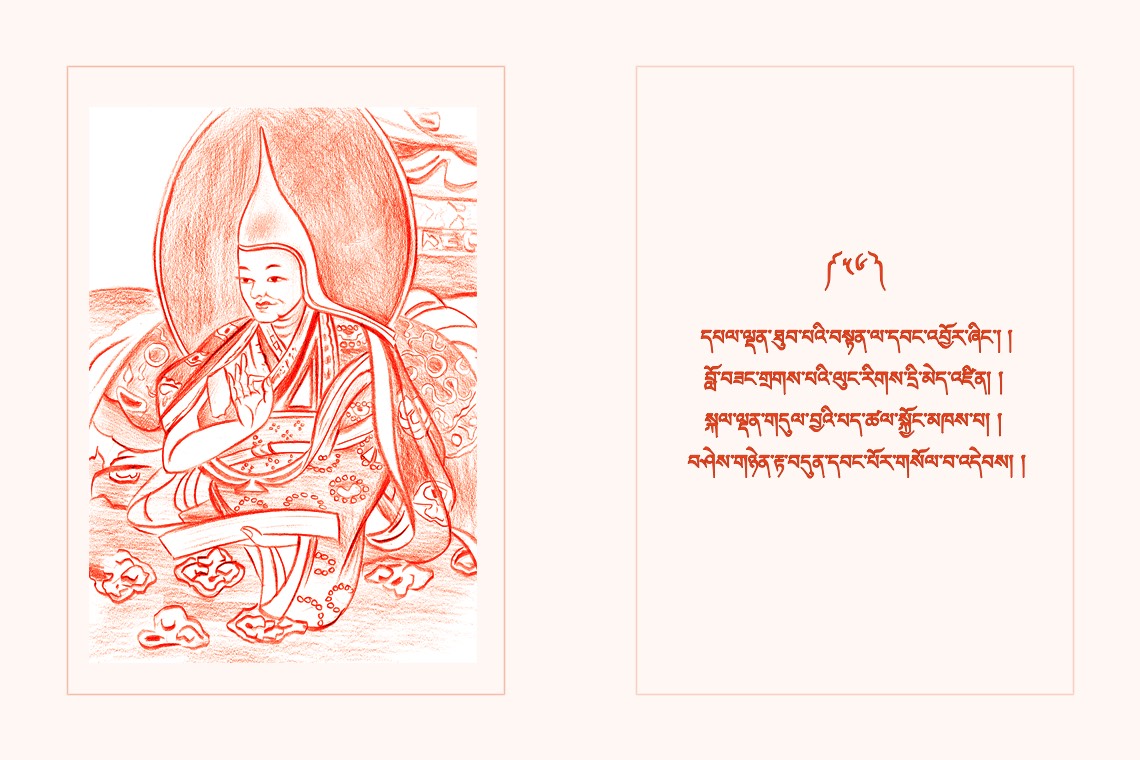 ༼༥༦༽
དཔལ་ལྡན་ཐུབ་པའི་བསྟན་ལ་དབང་འབྱོར་ཞིང་། །
བློ་བཟང་གྲགས་པའི་ལུང་རིགས་དྲི་མེད་འཛིན། །
སྐལ་ལྡན་གདུལ་བྱའི་པད་ཚལ་སྐྱོང་མཁས་པ། །
བཤེས་གཉེན་རྟ་བདུན་དབང་པོར་གསོལ་བ་འདེབས། །